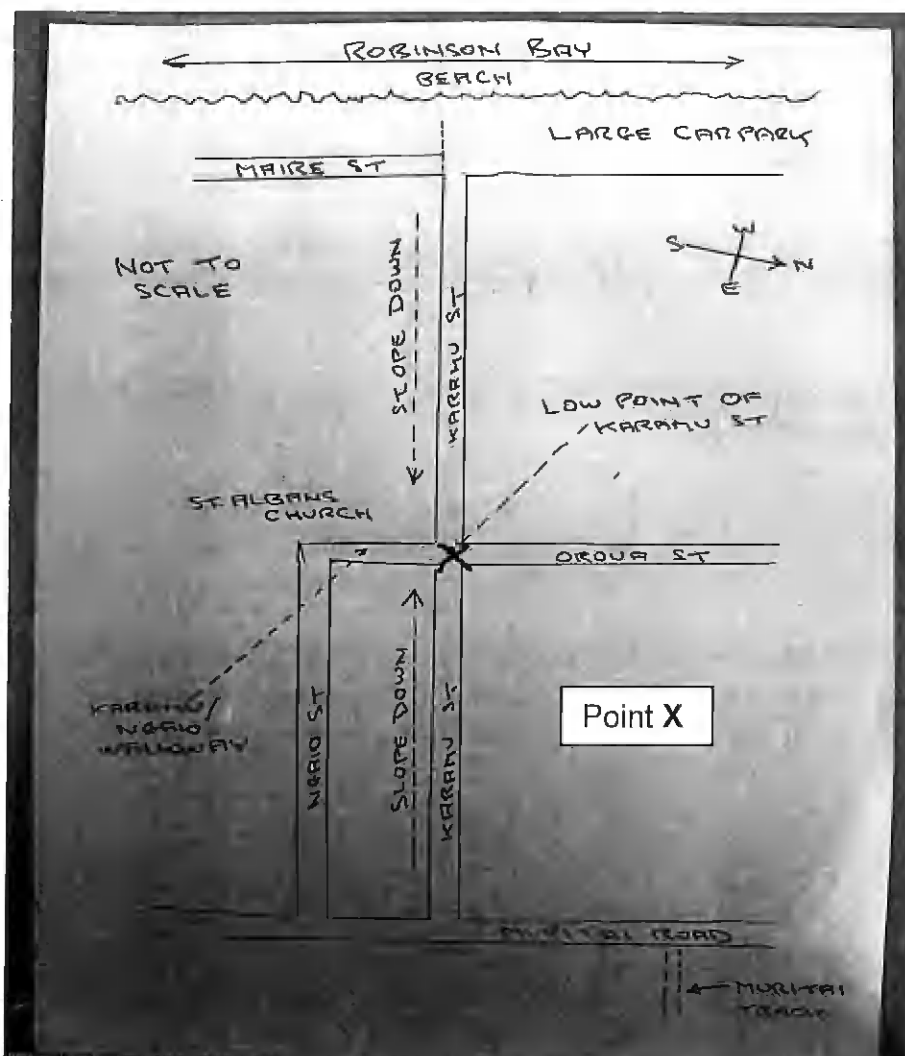 ROBINSON BAY
BEACH
LARGE CARPARK
MAIRE ST
S W N E
NOT TO
SCALE
SLOPE DOWN
KARAMU ST
LOW POINT OF
KARAMU ST
ST ALBANS
CHURCH
X
OROUA ST
KARAMU/
NGAIO
WALKWAY
NGAIO ST
SLOPE DOWN
KARAMU ST
Point X
MURITAI ROAD
MURITAI
TRACK